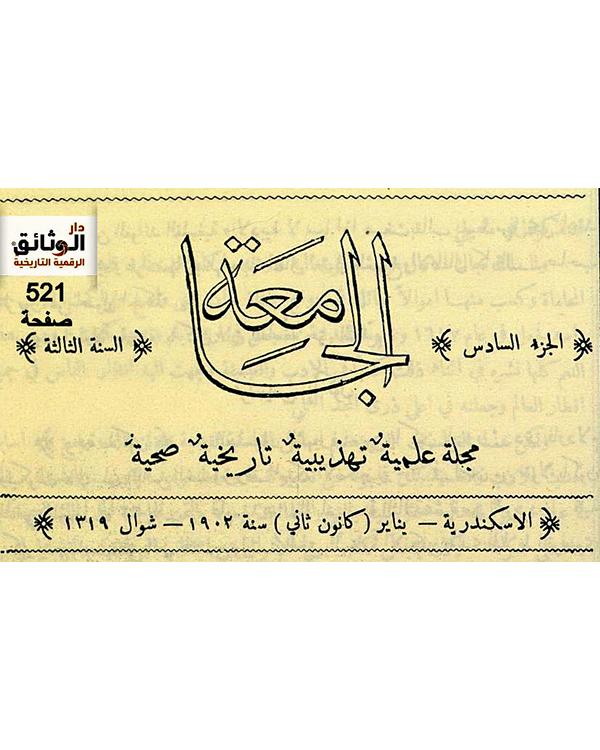 دار
الوثائق
الرقمية التاريخية
521
صفحة
الجامعة
الجزء السادس
السنة الثالثة
مجلة علميةٌ تهذيبيةٌ تاريخيةٌ صحيةٌ
الاسكندرية — يناير (كانون ثاني) سنة ١٩٠٢ — شوال ١٣١٩